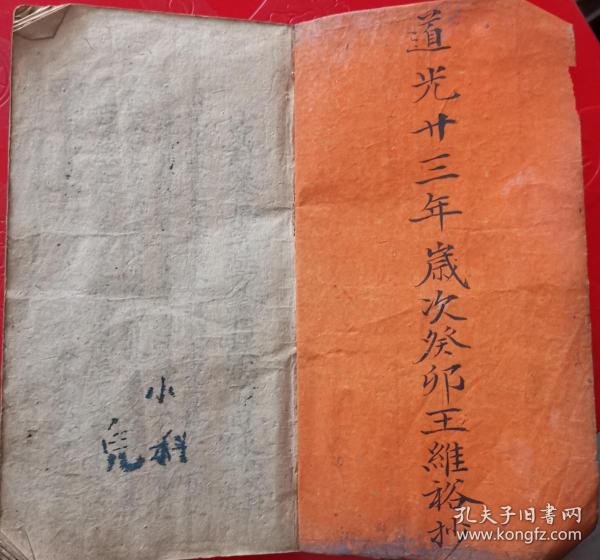 道光廿三年歲次癸卯王維裕抄
小科
兒
孔夫子旧书网
www.kongfz.com